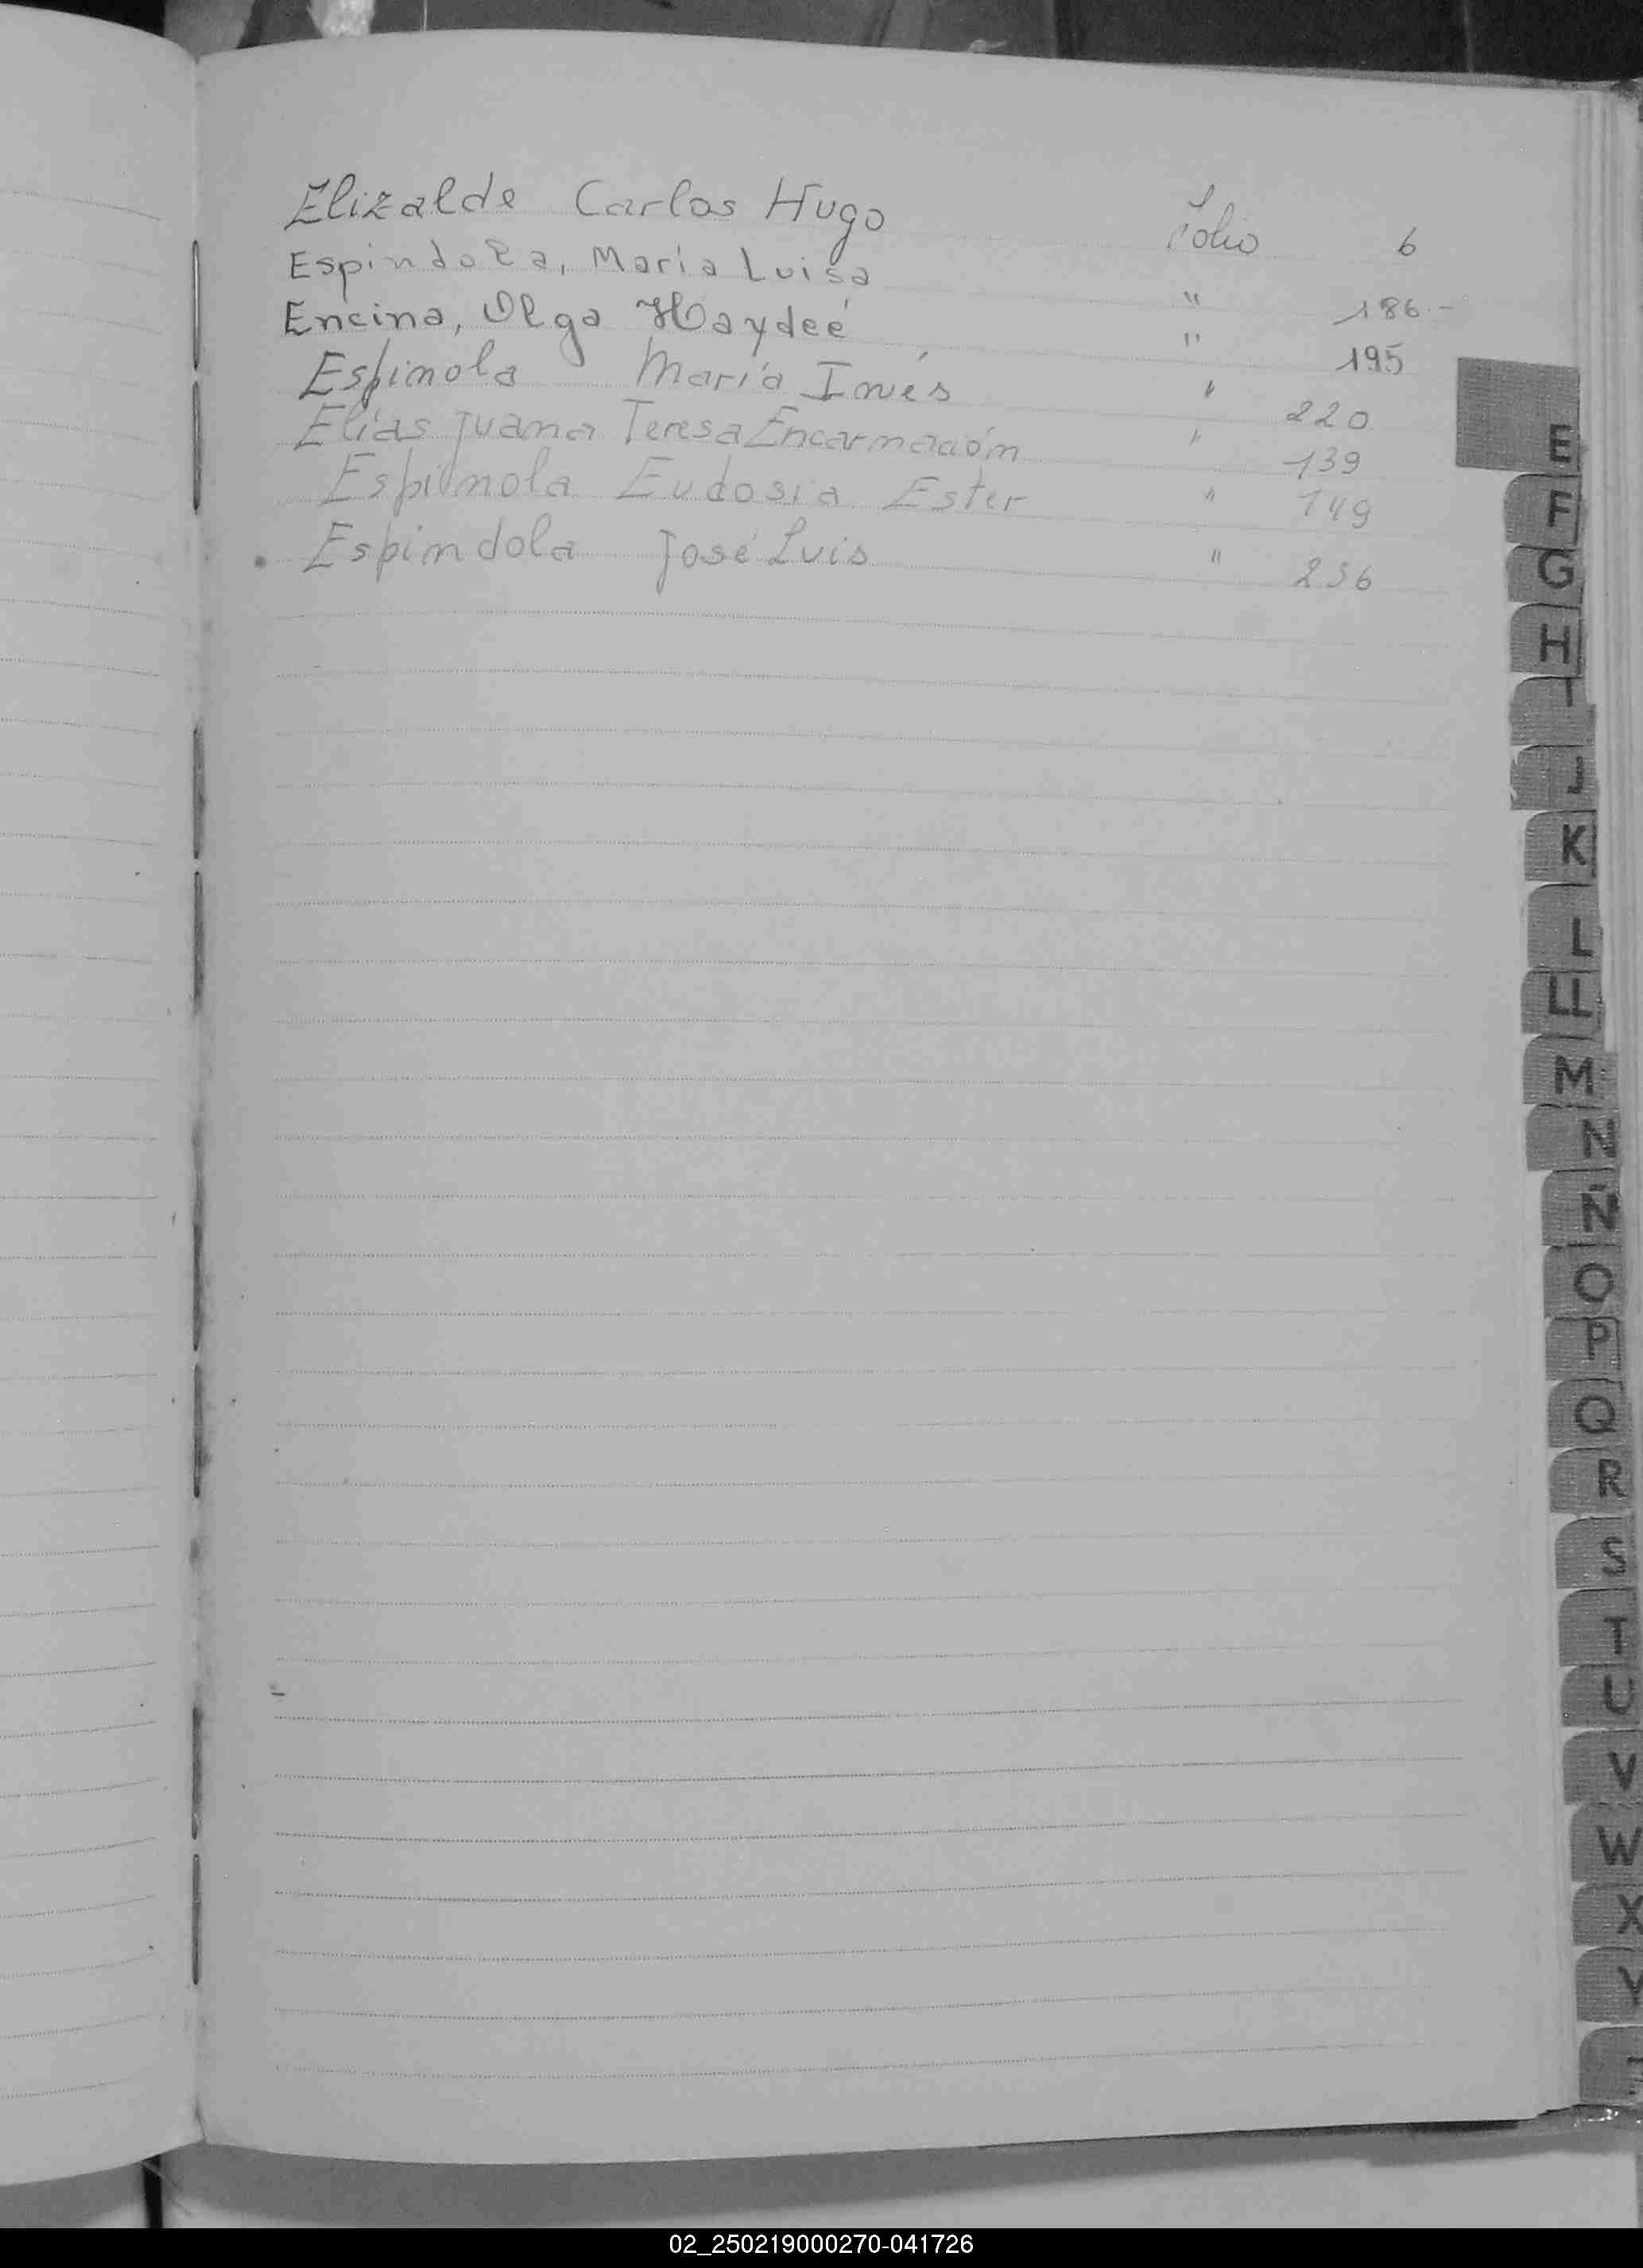 Elizalde Carlos Hugo Folio 6
Espindola, María Luisa " 186.-
Encina, Olga Haydeé " 195
Espinola María Inés " 220
Elías Juana Teresa Encarnación " 139
Espinola Eudosia Ester " 149
Espindola José Luis " 236
E
F
G
H
I
J
K
L
LL
M
N
Ñ
O
P
Q
R
S
T
U
V
W
X
Y
02_250219000270-041726